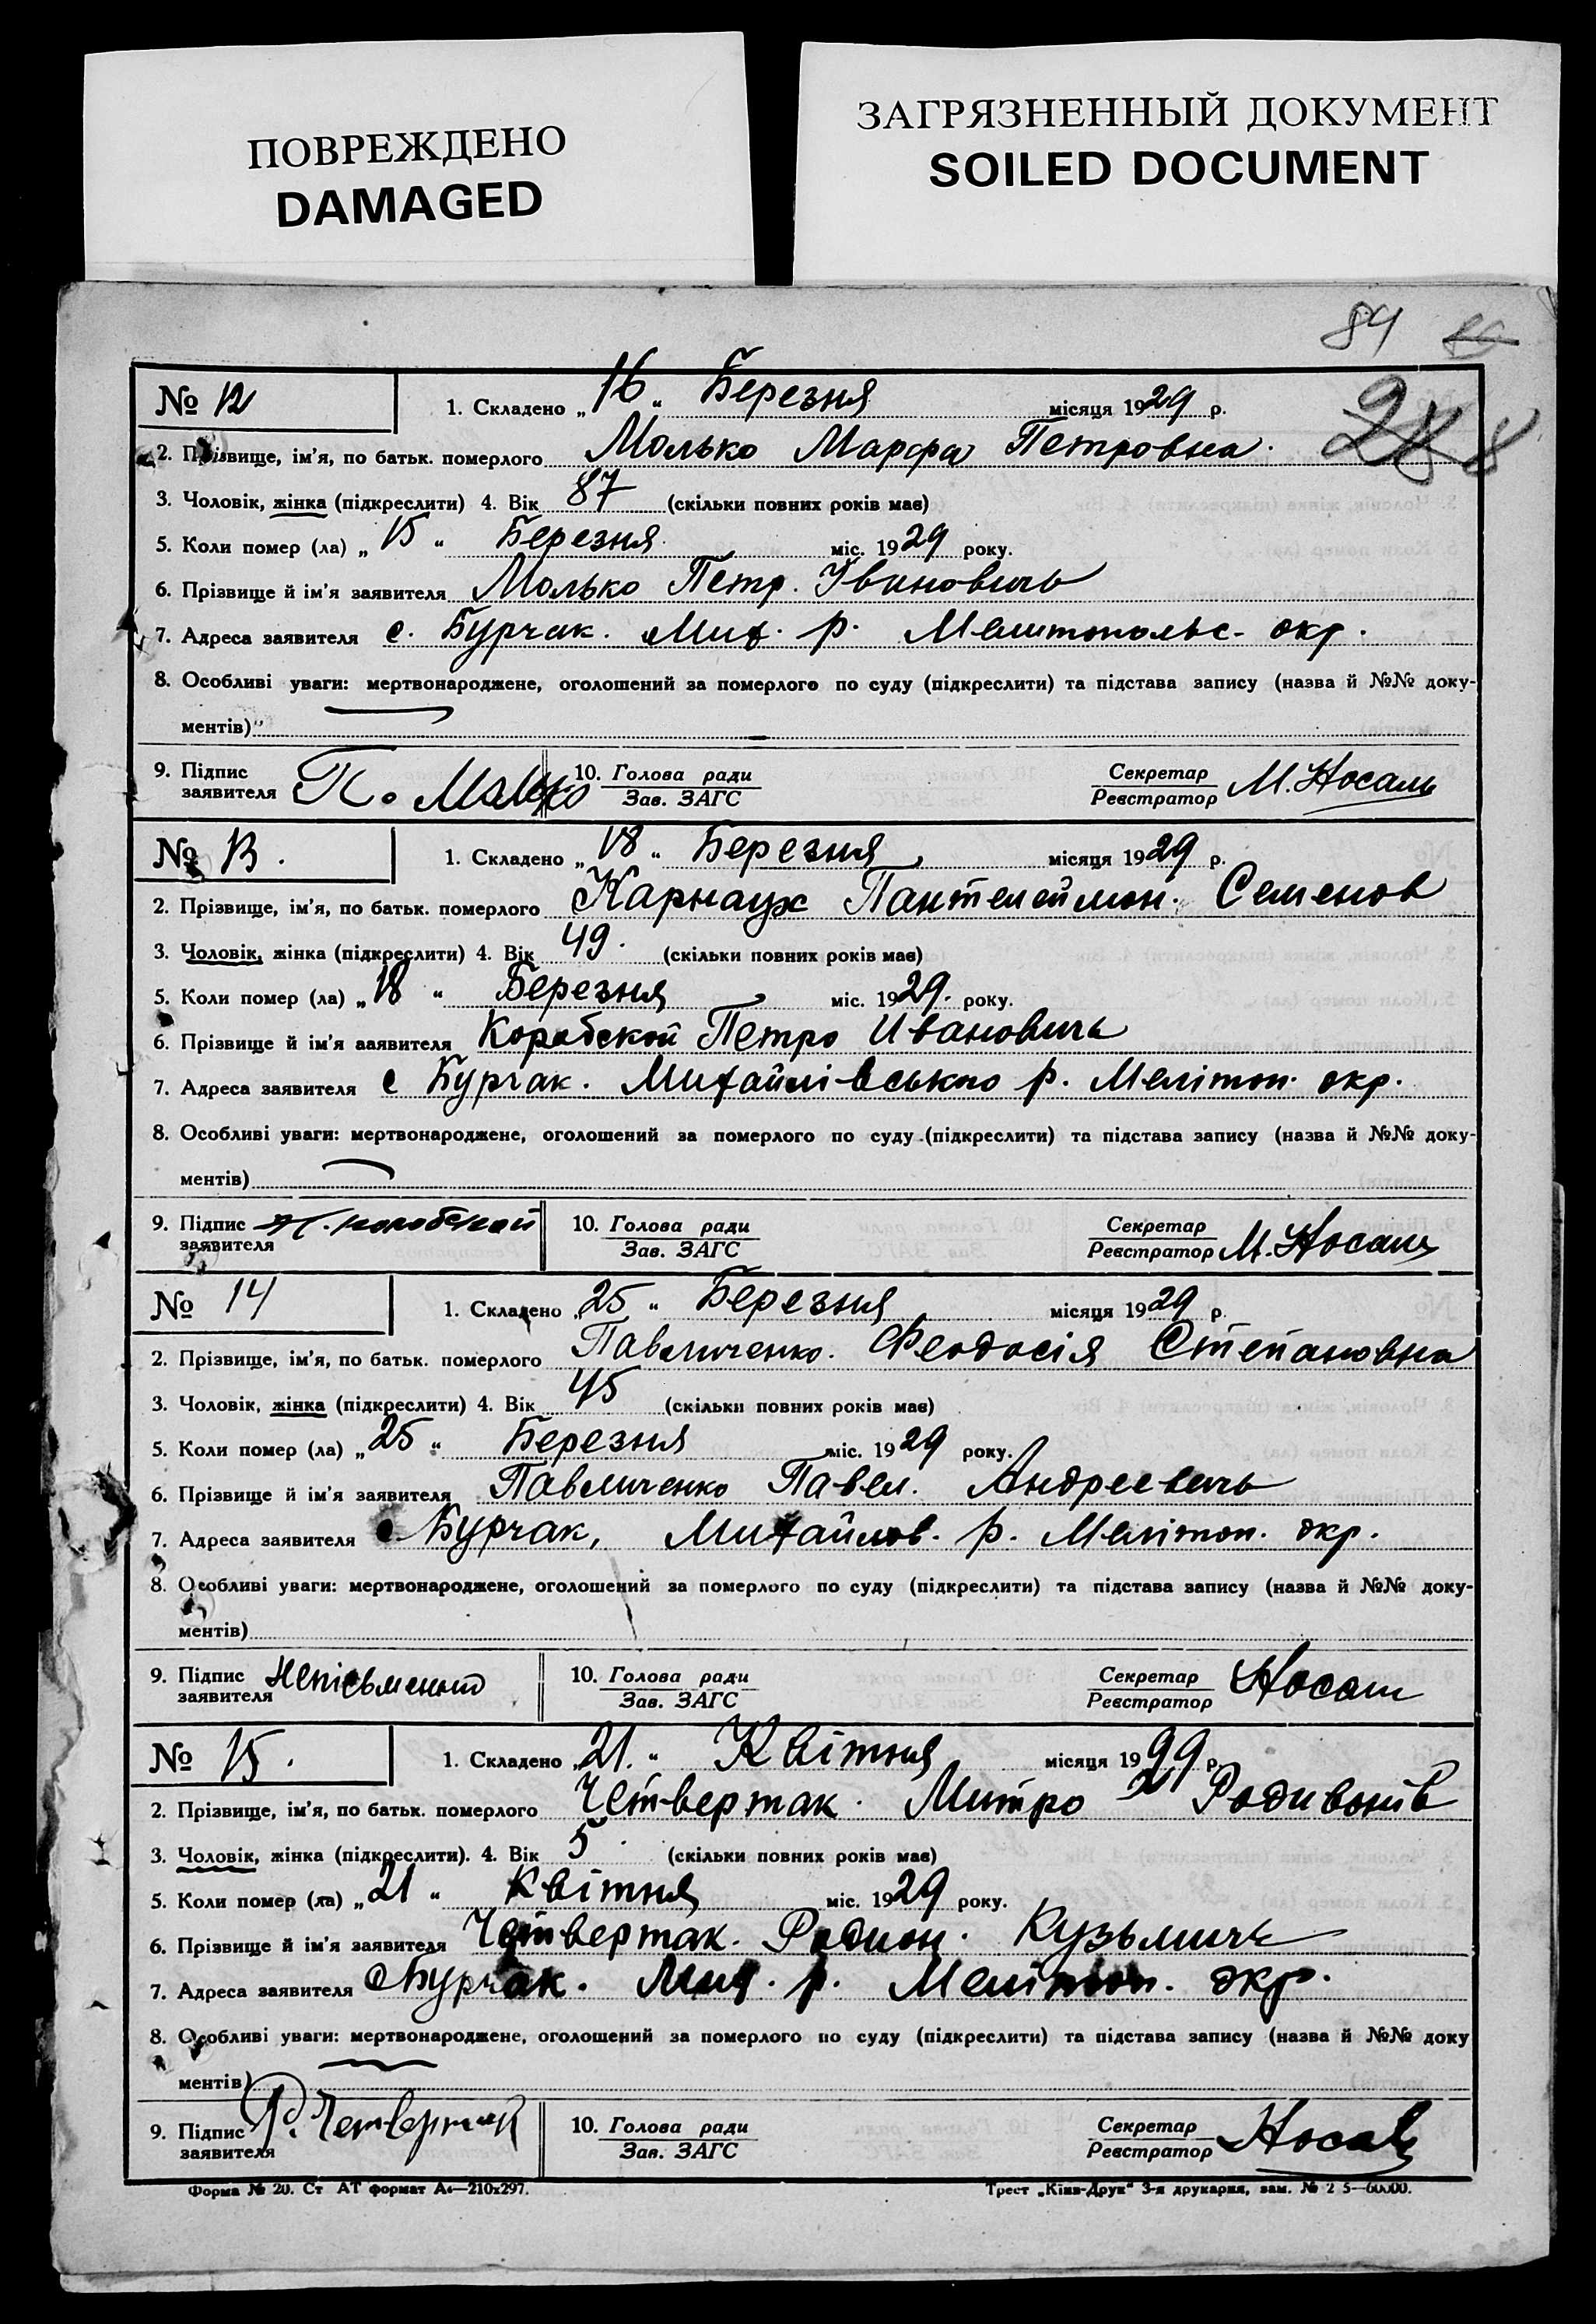 ПОВРЕЖДЕНО
DAMAGED
ЗАГРЯЗНЕННЫЙ ДОКУМЕНТ
SOILED DOCUMENT
84
№ 12 1. Складено „16“ Березня місяця 1929 р.
2. Прізвище, ім'я, по батьк. померлого Молько Марфа Петровна.
3. Чоловік, жінка (підкреслити) 4. Вік 87 (скільки повних років має)
5. Коли помер (ла) „15“ Березня міс. 1929 року.
6. Прізвище й ім'я заявителя Молько Петр. Івановичь
7. Адреса заявителя с. Бурчак. Мих. р. Мелитопольс. окр.
8. Особливі уваги: мертвонароджене, оголошений за померлого по суду (підкреслити) та підстава запису (назва й №№ доку-
ментів)
9. Підпис заявителя П. Молько 10. Голова ради Зав. ЗАГС Секретар Реєстратор М. Носань
№ 13. 1. Складено „18“ Березня місяця 1929 р.
2. Прізвище, ім'я, по батьк. померлого Карнаух Пантелеймон. Семенов
3. Чоловік, жінка (підкреслити) 4. Вік 49. (скільки повних років має)
5. Коли помер (ла) „18“ Березня міс. 1929. року.
6. Прізвище й ім'я заявителя Коробской Петро Ивановичь
7. Адреса заявителя с Бурчак. Михайлівського р. Мелітоп. окр.
8. Особливі уваги: мертвонароджене, оголошений за померлого по суду (підкреслити) та підстава запису (назва й №№ доку-
ментів)
9. Підпис заявителя П. Коробской 10. Голова ради Зав. ЗАГС Секретар Реєстратор М. Носань
№ 14 1. Складено „25“ Березня місяця 1929 р.
2. Прізвище, ім'я, по батьк. померлого Павличенко. Феодосія Степановна
3. Чоловік, жінка (підкреслити) 4. Вік 45 (скільки повних років має)
5. Коли помер (ла) „25“ Березня міс. 1929 року.
6. Прізвище й ім'я заявителя Павличенко Павел. Андреевичь
7. Адреса заявителя с. Бурчак, Михайлов. р. Мелітоп. окр.
8. Особливі уваги: мертвонароджене, оголошений за померлого по суду (підкреслити) та підстава запису (назва й №№ доку-
ментів)
9. Підпис заявителя 10. Голова ради Зав. ЗАГС Секретар Реєстратор Носань
№ 15. 1. Складено „21.“ Квітня місяця 1929 р.
2. Прізвище, ім'я, по батьк. померлого Четвертак. Митро Родивонів
3. Чоловік, жінка (підкреслити). 4. Вік 5 (скільки повних років має)
5. Коли помер (ла) „21“ Квітня міс. 1929 року.
6. Прізвище й ім'я заявителя Четвертак. Родион. Кузьмичь
7. Адреса заявителя с Бурчак. Мих. р. Мелітоп. окр.
8. Особливі уваги: мертвонароджене, оголошений за померлого по суду (підкреслити) та підстава запису (назва й №№ доку
ментів)
9. Підпис заявителя Р. Четвертак 10. Голова ради Зав. ЗАГС Секретар Реєстратор Носань
Форма № 20. Ст АТ формат А4—210x297. Трест „Київ-Друк“ 3-я друкарня, зам. №